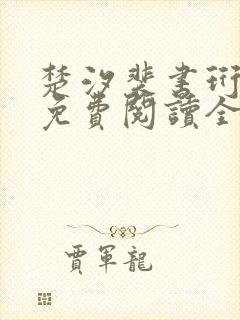 楚汐裴書珩
免費閱讀全
賈軍龍